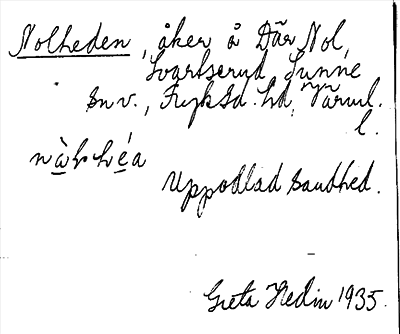 Nolheden, åker å Där Nol,
Svartserud Sunne
sn v., Fryksd. hd, Värml.
l.
Uppodlad sandhed.
Greta Hedin 1935.